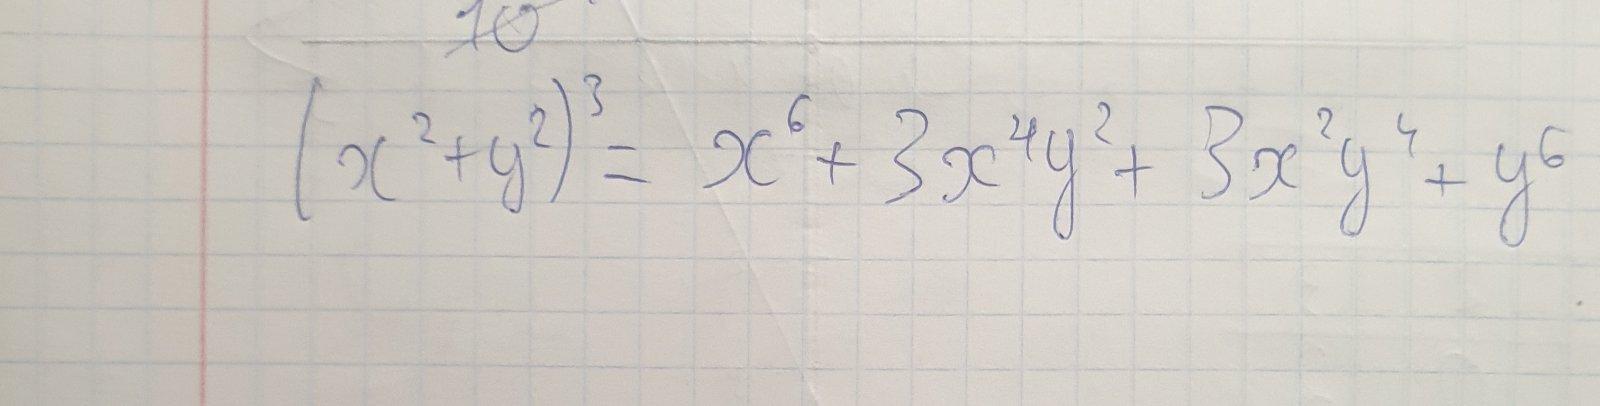 10
(x²+y²)³ = x⁶ + 3x⁴y² + 3x²y⁴ + y⁶